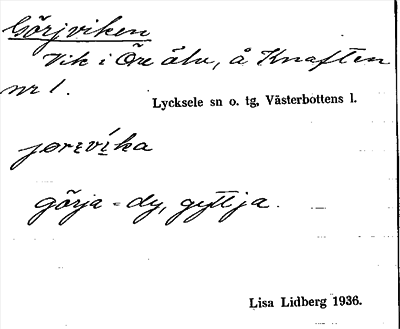 Görjviken
Vik i Öre älv, å Knaften
nr 1.
Lycksele sn o. tg, Västerbottens l.
jørɪvíka
görja = dy, gyttja.
Lisa Lidberg 1936.